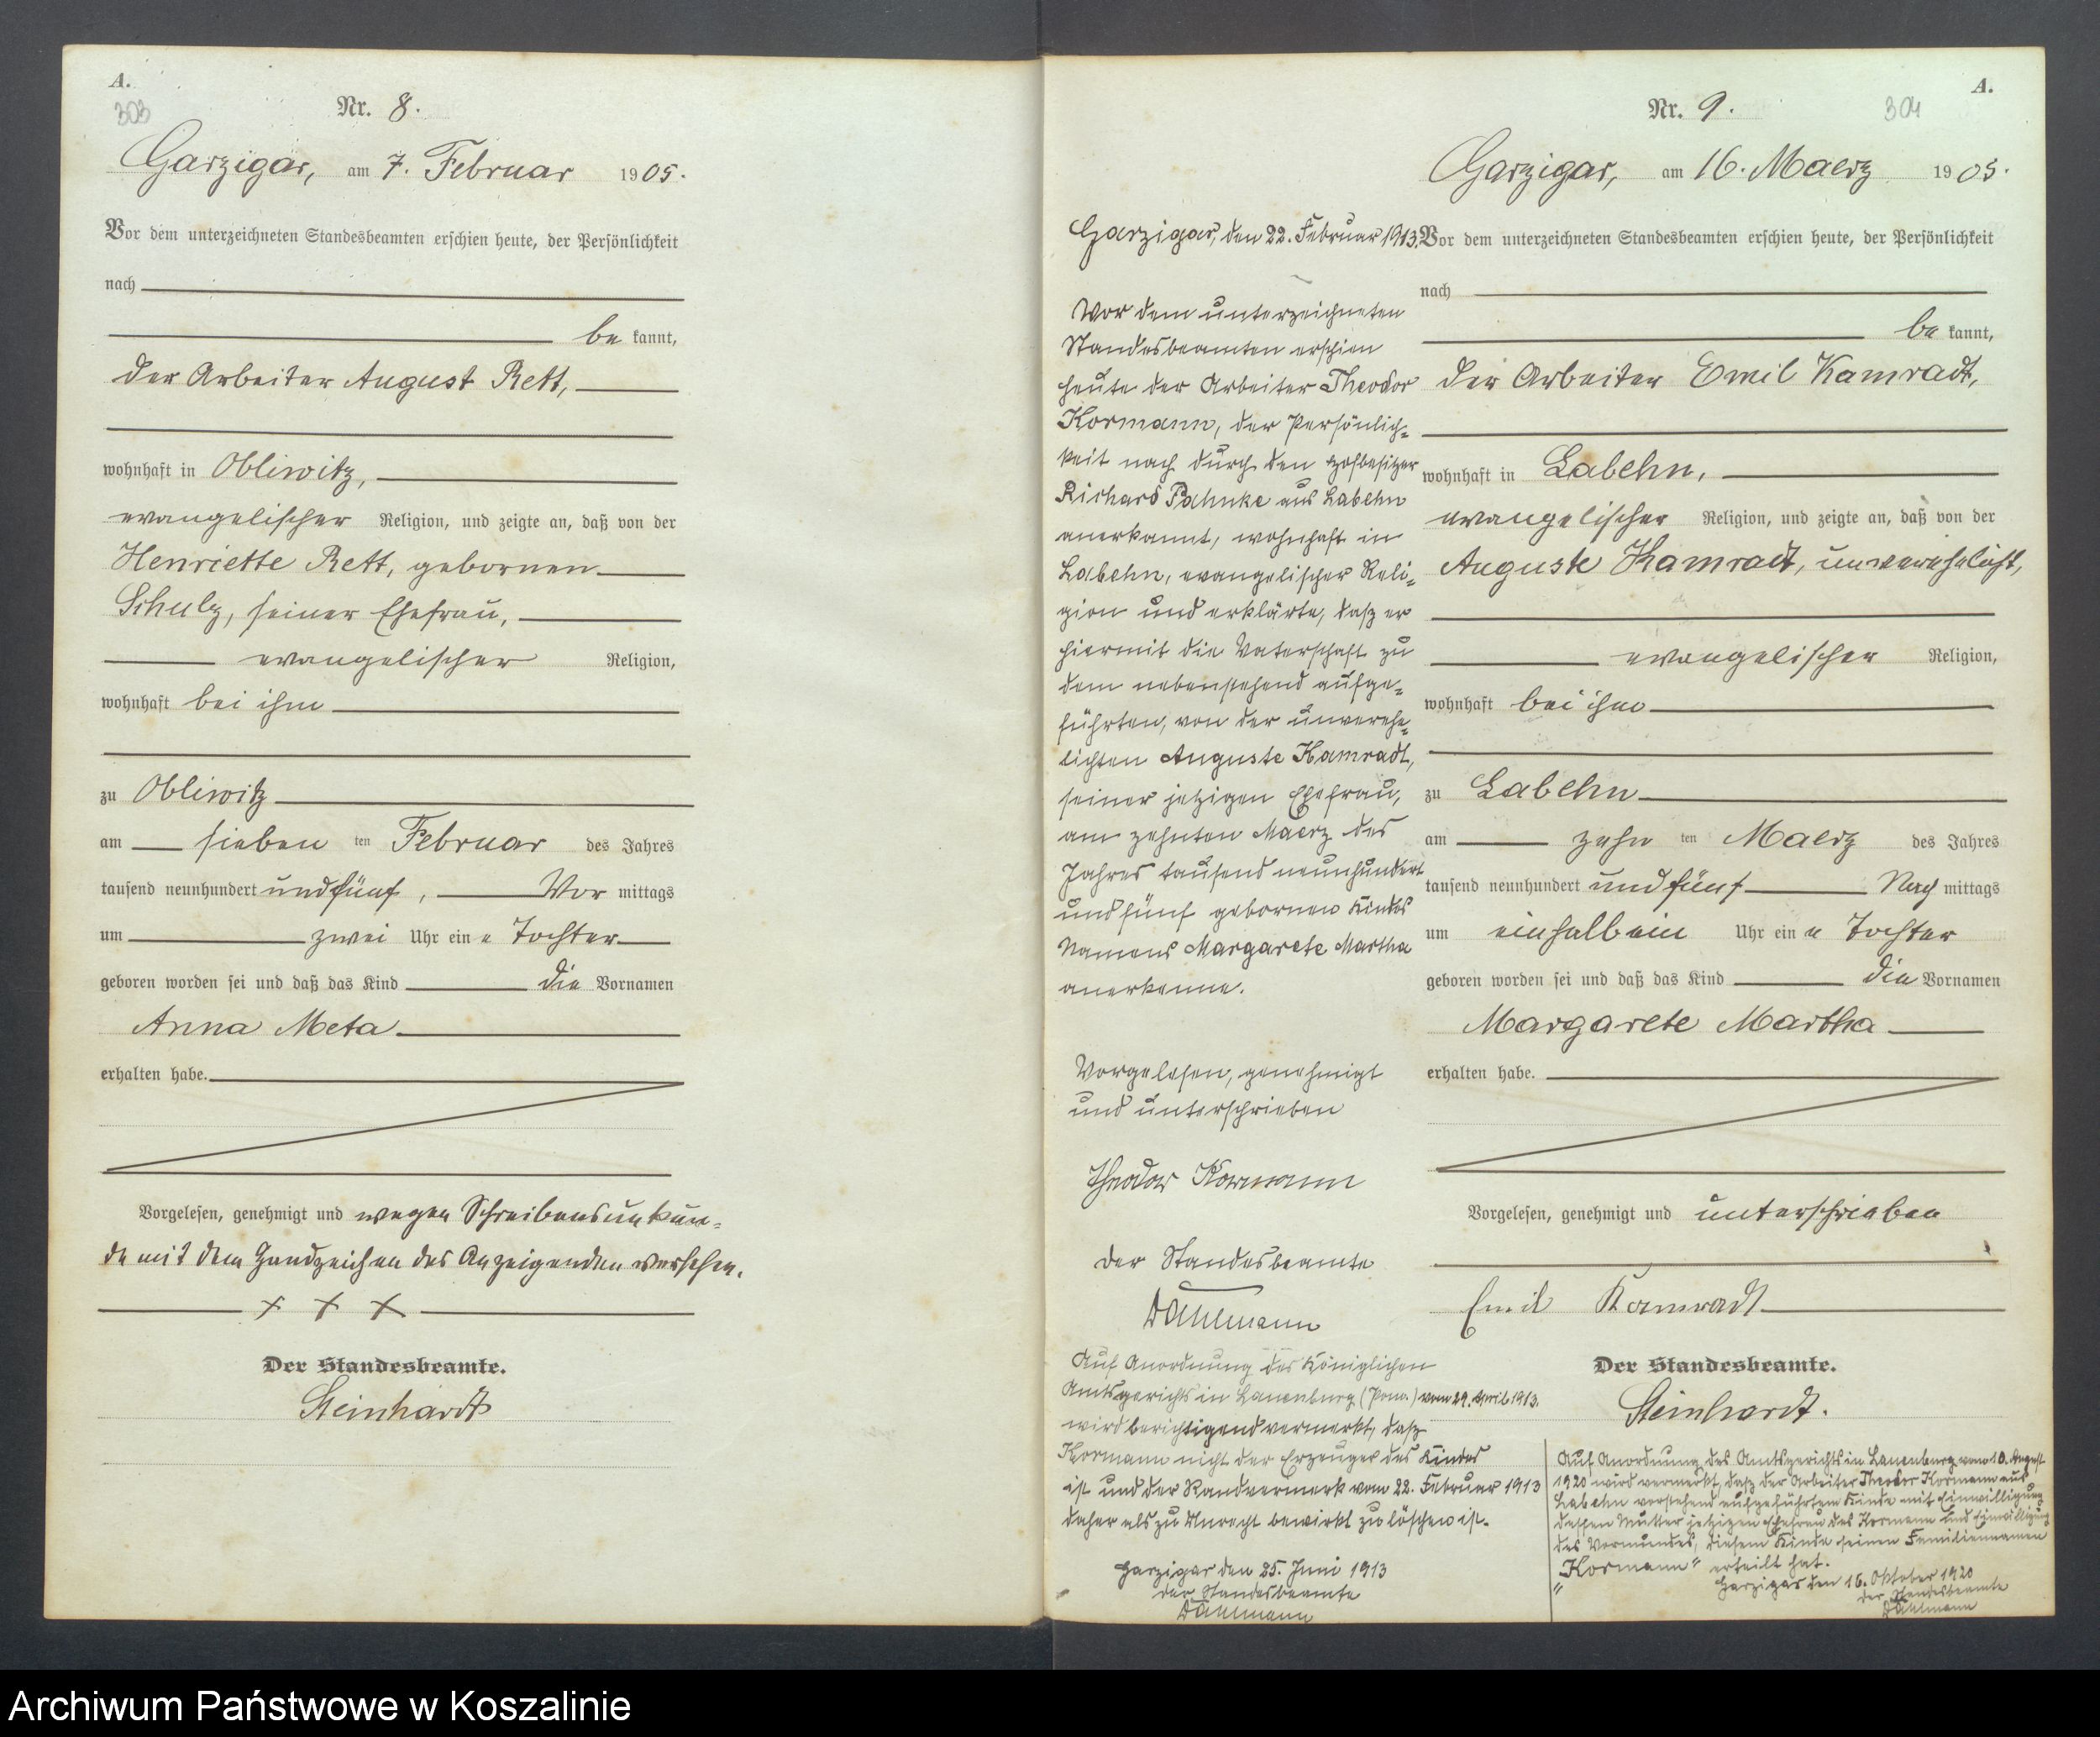 A.
303
Nr. 8.
Garzigar, am 7. Februar 1905.
Vor dem unterzeichneten Standesbeamten erschien heute, der Persönlichkeit
nach
be kannt,
der Arbeiter August Rett,
wohnhaft in Obliwitz,
evangelischer Religion, und zeigte an, daß von der
Henriette Rett, gebornen
Schulz, seiner Ehefrau,
evangelischer Religion,
wohnhaft bei ihm
zu Obliwitz
am sieben ten Februar des Jahres
tausend neunhundert und fünf, Vor mittags
um zwei Uhr ein e Tochter
geboren worden sei und daß das Kind die Vornamen
Anna Meta
erhalten habe.
Vorgelesen, genehmigt und wegen Schreibensunkun-
de mit dem Handzeichen des Anzeigenden versehen.
+ + +
Der Standesbeamte.
Steinhardt
A.
304
Nr. 9.
Garzigar, am 16. Maerz 1905.
Vor dem unterzeichneten Standesbeamten erschien heute, der Persönlichkeit
nach
be kannt,
der Arbeiter Emil Kamradt,
wohnhaft in Labehn,
evangelischer Religion, und zeigte an, daß von der
Auguste Kamradt, unverehelicht,
evangelischer Religion,
wohnhaft bei ihm
zu Labehn
am zehn ten Maerz des Jahres
tausend neunhundert und fünf Nach mittags
um einhalb ein Uhr ein e Tochter
geboren worden sei und daß das Kind die Vornamen
Margarete Martha
erhalten habe.
Vorgelesen, genehmigt und unterschrieben
Emil Kamradt
Der Standesbeamte.
Steinhardt.
Garzigar, den 22. Februar 1913.
Vor dem unterzeichneten
Standesbeamten erschien
heute der Arbeiter Theodor
Kormann, der Persönlich-
keit nach durch den Hofbesitzer
Richard Pahnke aus Labehn
anerkannt, wohnhaft in
Labehn, evangelischer Reli-
gion und erklärte, daß er
hiermit die Vaterschaft zu
dem nebenstehend aufge-
führten, von der unverehe-
lichten Auguste Kamradt,
seiner jetzigen Ehefrau,
am zehnten Maerz des
Jahres tausend neunhundert
und fünf gebornen Kindes
Namens Margarete Martha
anerkenne.
Vorgelesen, genehmigt
und unterschrieben
Theodor Kormann
Der Standesbeamte
Dahlmann
Auf Anordnung des Königlichen
Amtsgerichts in Lauenburg (Pom.) vom 29. April 1913.
wird berichtigend vermerkt, daß
Kormann nicht der Erzeuger des Kindes
ist und der Randvermerk vom 22. Februar 1913
daher als zu Unrecht bewirkt zu löschen ist.
Garzigar den 25. Juni 1913
Der Standesbeamte
Dahlmann
Auf Anordnung des Amtsgerichts in Lauenburg vom 10. August
1920 wird vermerkt, daß der Arbeiter Theodor Kormann aus
Labehn vorstehend aufgeführtem Kinde mit Einwilligung
dessen Mutter jetzigen Ehefrau des Kormann und Einwilligung
des Vormundes, diesem Kinde seinen Familiennamen
"Kormann" erteilt hat.
Garzigar den 16. Oktober 1920
Der Standesbeamte
Dahlmann
Archiwum Państwowe w Koszalinie